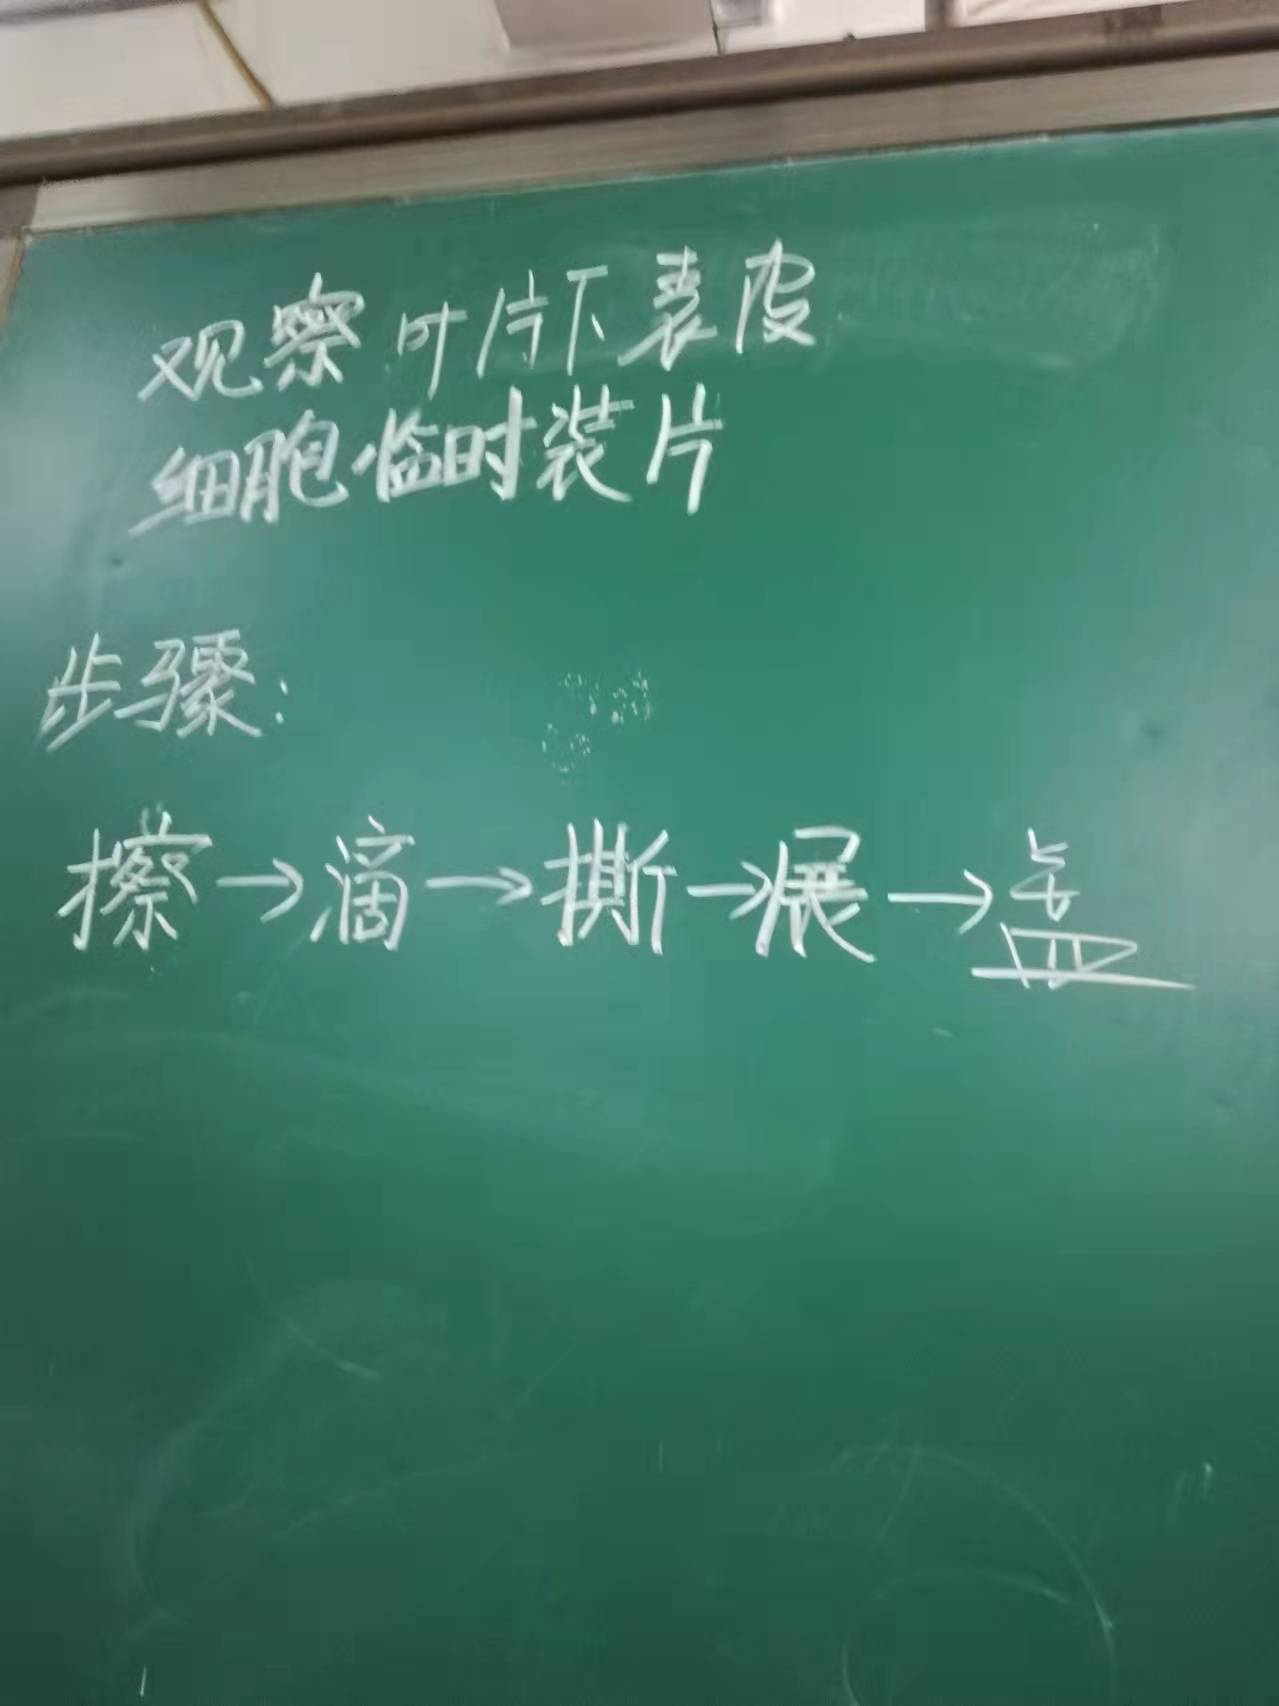 观察叶片下表皮
细胞临时装片
步骤:
擦→滴→撕→展→盖